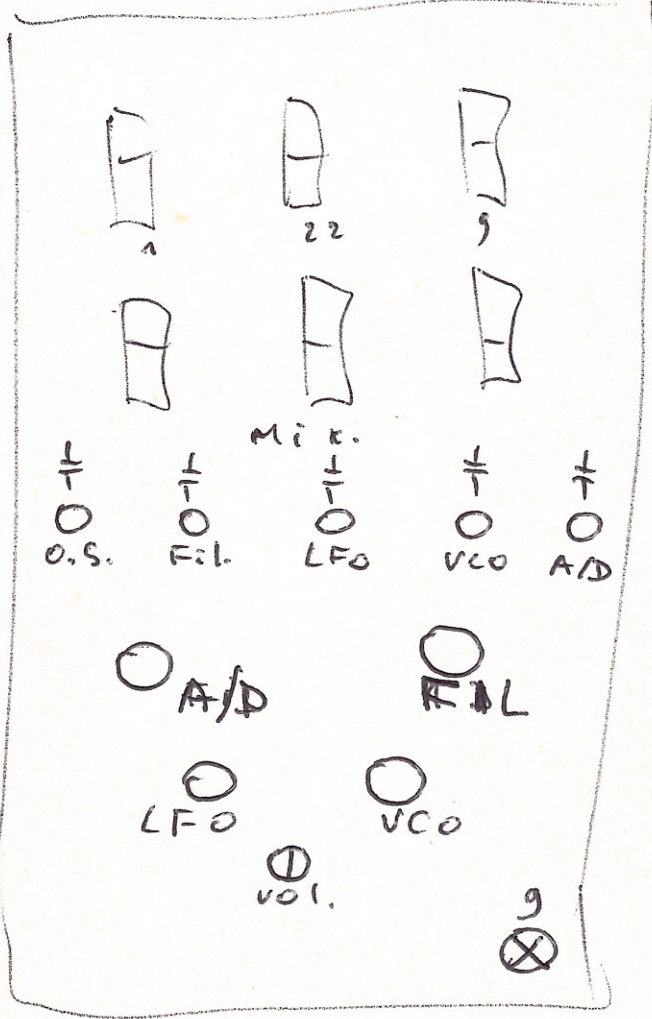 1 22 9
Mik.
O.S. Fil. LFO VCO A/D
A/D
LFO VCO
Vol.
9